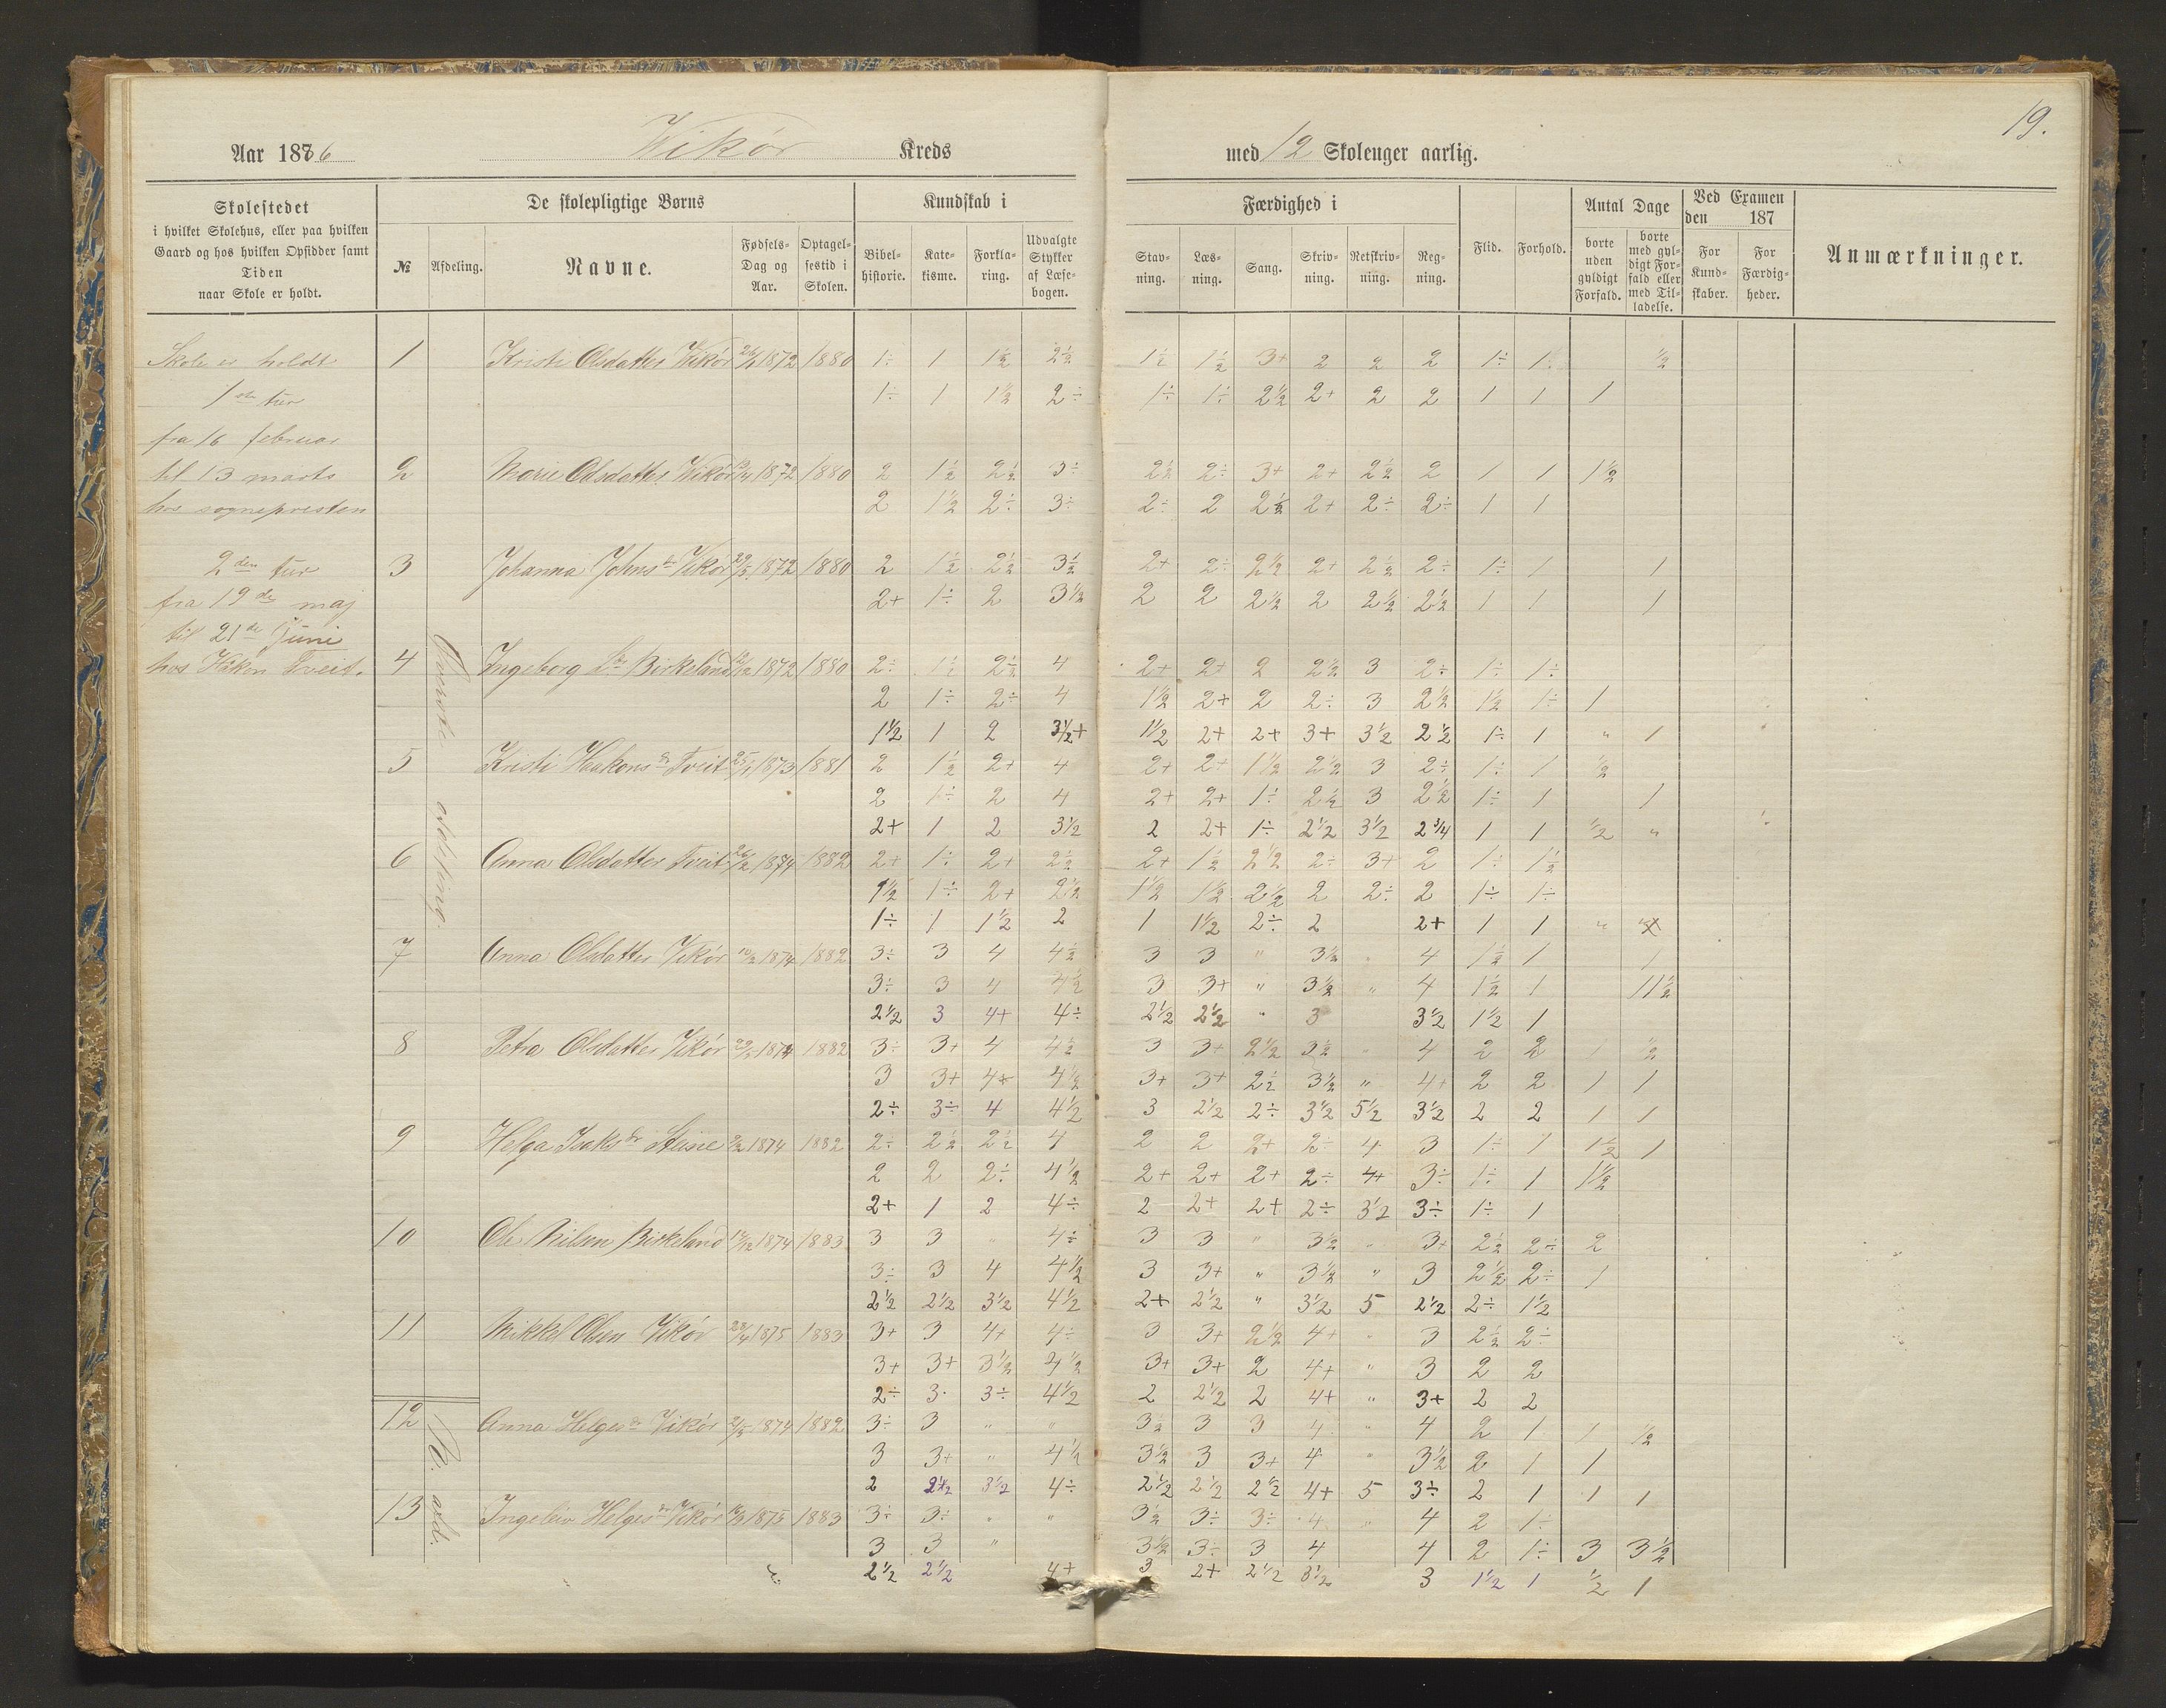 19.
Aar 1886 Vikör Kreds med 12 Skoleuger aarlig.
Skolestedet
i hvilket Skolehus, eller paa hvilken
Gaard og hos hvilken Opsidder samt
Tiden
naar Skole er holdt.
De skolepligtige Børns
№ Afdeling. Navne.
Fødsels-
Dag og
Aar.
Optagel-
sestid i
Skolen.
Kundskab i
Bibel-
historie.
Kate-
kisme.
Forkla-
ring.
Udvalgte
Stykker
af Læse-
bogen.
Færdighed i
Stav-
ning.
Læs-
ning.
Sang.
Skriv-
ning.
Retskriv-
ning.
Reg-
ning.
Flid. Forhold.
Antal Dage
borte
uden
gyldigt
Forfald.
borte
med gyl-
digt For-
fald eller
med Til-
ladelse.
Ved Examen
den 187
For
Kund-
skaber.
For
Færdig-
heder.
Anmærkninger.
Skole er holdt
1ste tur
fra 16 februar
til 13 marts
hos sognepresten
2den tur
fra 19de maj
til 21de juni
hos Håkon Tveit.
Øverste afdeling.
1 Kristi Olsdatter Vikör 1872 1880 1÷ 1 1½ 2½ 1½ 1½ 3+ 2 2 2 1÷ 1÷ ½
1÷ 1 1½ 2÷ 1÷ 1÷ 2½ 2+ 2 2 1 1 1
2 Marie Olsdatter Vikör 1872 1880 2 1½ 2½ 3÷ 2½ 2÷ 3+ 2+ 2½ 2 1 1 1½
2 1½ 2÷ 3÷ 2÷ 2 2½ 2+ 2÷ 2÷ 1 1
3 Johanna Johnsdr Vikör 1872 1880 2 1½ 2½ 3½ 2+ 2÷ 2½ 2+ 2½ 2÷ 1÷ 1 1
2+ 1÷ 2 3½ 2 2 2½ 2 2½ 2½ 1 1 1
4 Ingeborg Birkeland 1872 1880 2÷ 1½ 2½ 4 2+ 2+ 2 2½ 3 2÷ 1÷ 1÷
2 1÷ 2÷ 4 1½ 2+ 2 2÷ 3 2½ 1½ 1÷ 1
1½ 1 2 3½+ 1½ 2+ 2+ 3+ 3½ 2½ 1÷ 1 " 1
5 Kristi Haakonsdr Tveit 1873 1881 2 1½ 2+ 4 2+ 2+ 1½ 2½ 3 2÷ 1÷ 1 ½
2 1÷ 2 4 2+ 2+ 1÷ 2½ 3 2½ 1÷ 1 1
2+ 1 2 3½ 2 2+ 1÷ 2½ 3½ 2¾ 1 1 ½ "
6 Anna Olsdatter Tveit 1874 1882 2+ 1÷ 2+ 2½ 2+ 1½ 2½ 2÷ 3+ 2 1÷ 1½
1½ 1÷ 2+ 2½ 1½ 1½ 2½ 2 2÷ 2 1÷ 1÷
1÷ 1 1½ 2 1 1½ 2÷ 2 2+ 1 1 "
7 Anna Olsdatter Vikör 1874 1882 3÷ 3 4 4½ 3 3 " 3½ " 4 1½ 1 1
3÷ 3 4 4½ 3 3+ " 3½ " 4 1½ 1 11½
2½ 3 4+ 4÷ 2½ 2½ " 3 3½ 1½ 1
8 Petra Olsdatter Vikör 1874 1882 3÷ 3+ 4 4½ 3 3+ 2½ 3½ " 4 2 2 1 ½
3 3+ 4+ 4½ 3+ 3+ 2½ 3½ " 4+ 2 2 1 1
2÷ 3÷ 4 4½ 3 2½ 2÷ 3½ 5½ 3½ 2 2 1 1
9 Helga Isaksdr Steine 1874 1882 2÷ 2½ 2½ 4 2 2 2+ 2÷ 4 3 1÷ 1 1½ 1
2 2 2÷ 4½ 2+ 2+ 2+ 2÷ 4+ 3÷ 1÷ 1 1½
2+ 1 2 4÷ 2 2+ 2+ 2÷ 3½ 3÷ 1÷ 1
10 Ole Nilsen Birkeland 1874 1883 3 3 " 4÷ 3 3 " 3½ " 3+ 2½ 2÷ 2
3÷ 3 4 4½ 3 3+ " 3½ " 3 2½ 2÷ 1
2½ 2½ 3½ 4½ 2+ 2½ " 3½ 5 2½ 2÷ 1½
11 Mikkel Olsen Vikör 28/4 1875 1883 3+ 3 4+ 4÷ 3 3+ 2½ 4+ " 3 2½ 2÷
3+ 3+ 3½ 4½ 3+ 3+ 2 4+ " 3 2 2
2÷ 3÷ 3÷ 4½ 2 2½ 2 4+ " 3+ 2 2
12 Anna Helgesdr Vikör 1874 1882 3÷ 3 " " 3½ 3 3 4 " 4 2 1 1 ½
3 3+ " 4½ 3½ 3 3+ 4 " 3½ 2 1 1
2 2½ 3½ 4÷ 2½ 2½ 2½ 4+ 5 3÷ 2 1 1 1
13 Ingeleiv Helgesdr Vikör 1875 1883 3÷ 3÷ " " 3½ 3÷ 3÷ 4 " 4 2 1÷
3 3 " 3½ 3÷ 3 4 4 2 1÷ 3 3½
2½ 2½ 4+ 3 2+ 2½ 3½ 3 1½ 1 ½ 1